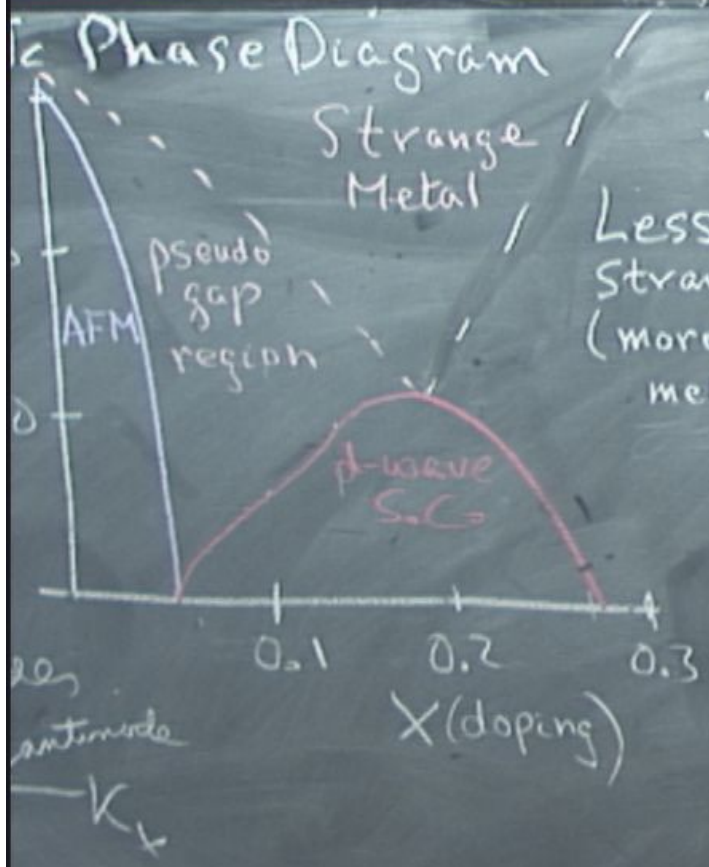 ic Phase Diagram
Strange
Metal
Less
Stran
(more
me
pseudo
gap
region
AFM
0
d-wave
S.C.
0.1 0.2 0.3
X (doping)
antinode
K